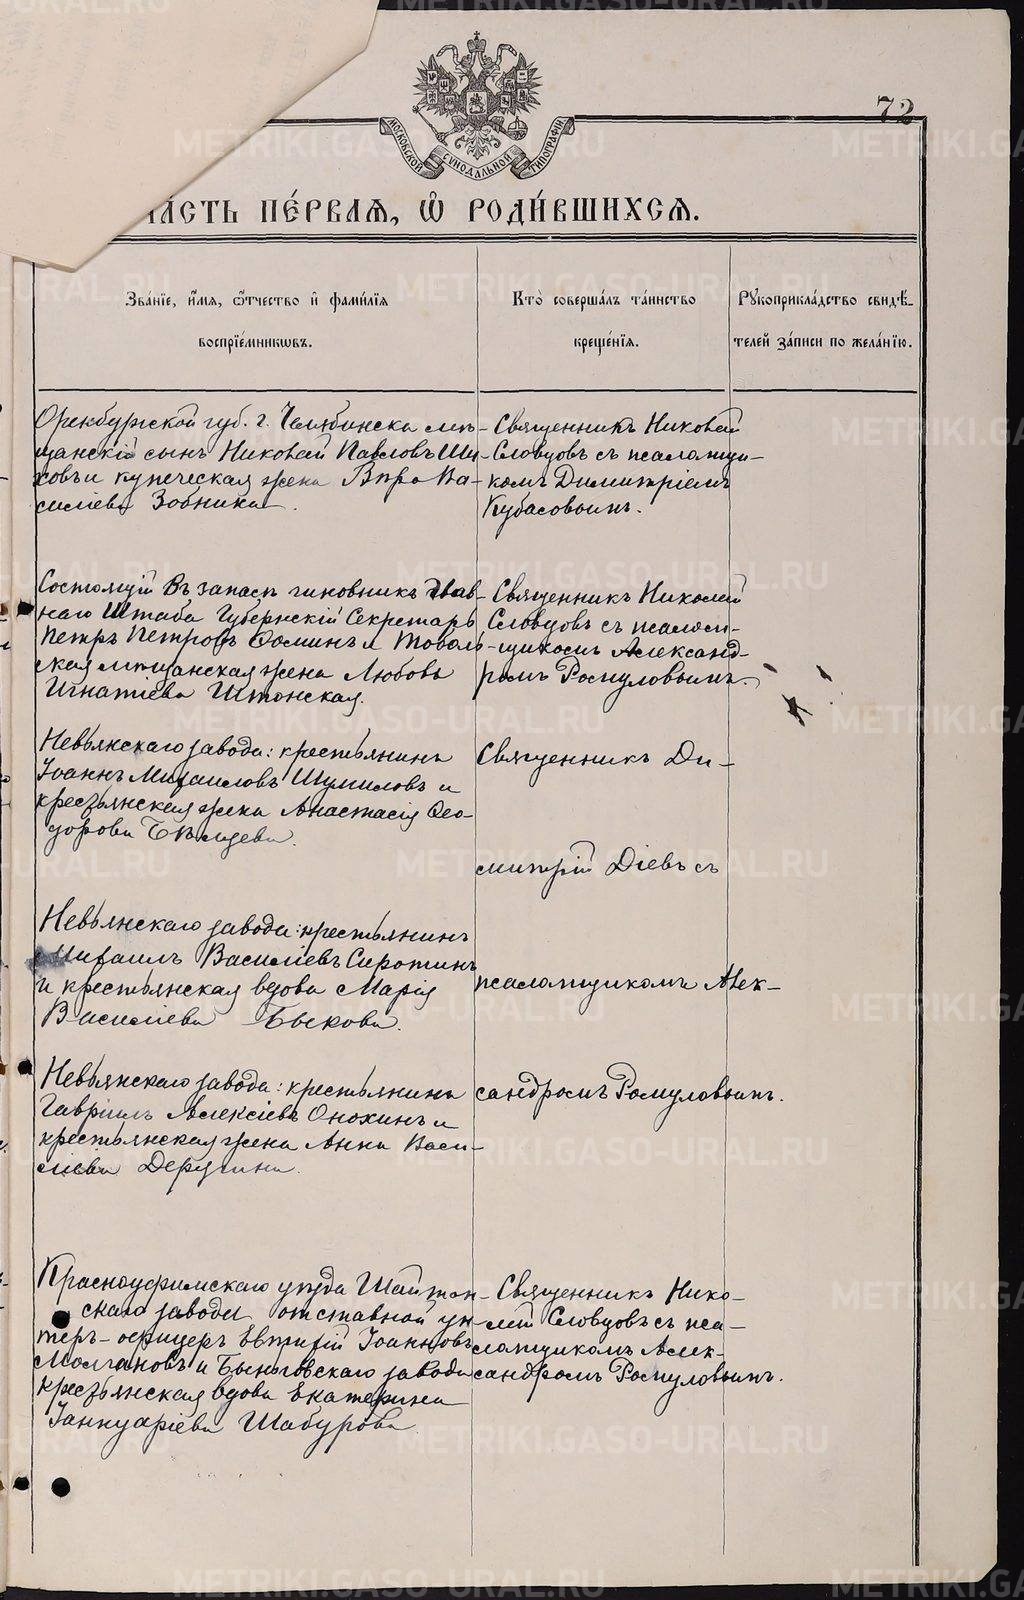 72
МОСКОВСКОЙ СѴНОДАЛЬНОЙ ТИПОГРАФІИ
ЧА́СТЬ ПЕ́РВАѦ, Ѽ РОДИ́ВШИХСѦ.
Зва́нїе, и҆́мѧ, ѻ҆́тчество и҆ фами́лїѧ
воспрїе́мникѡвъ.
Кто̀ соверша́лъ та́инство
креще́нїѧ.
Рꙋкоприкла́дство свидѣ́-
телей за́писи по жела́нїю.
Оренбургской губ. г. Челябинска мѣ-
щанскій сынъ Николай Павловъ Ши-
ховъ и купеческая жена Вѣра Ва-
силіева Зобнина.
Священникъ Николай
Словцовъ съ псаломщи-
комъ Димитріемъ
Кубасовымъ.
Состоящій въ запасѣ чиновникъ Глав-
наго Штаба Губернскій Секретарь
Петръ Петровъ Фоминъ и Тоболь-
ская мѣщанская жена Любовь
Игнатіева Истонская.
Священникъ Николай
Словцовъ съ псалом-
щикомъ Александ-
ромъ Ромуловымъ.
Невьянскаго завода: крестьянинъ
Іоаннъ Михаиловъ Шумиловъ и
крестьянская жена Анастасія Ѳео-
дорова Бѣляева.
Невьянскаго завода: крестьянинъ
Михаилъ Василіевъ Сиротинъ
и крестьянская вдова Марія
Василіева Быкова.
Невьянскаго завода: крестьянинъ
Гавріилъ Алексіевъ Онохинъ и
крестьянская жена Анна Васи-
ліева Дерягина.
Священникъ Ди-
митрій Діевъ съ
псаломщикомъ Алек-
сандромъ Ромуловымъ.
Красноуфимскаго уѣзда Шайтан-
скаго завода отставной ун-
теръ-офицеръ Евтихій Іоанновъ
Молчановъ и Быньговскаго завода
крестьянская вдова Екатерина
Іаннуаріева Шабурова.
Священникъ Нико-
лай Словцовъ съ пса-
ломщикомъ Алек-
сандромъ Ромуловымъ.